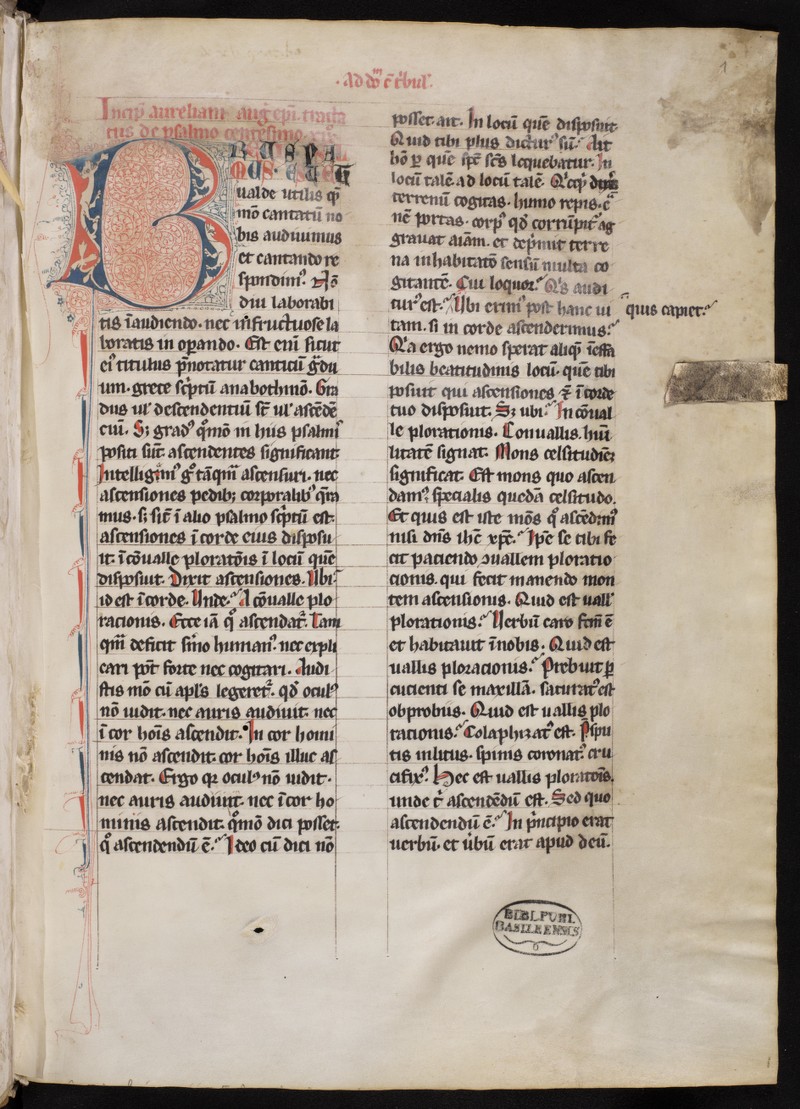 ·ad dn̄m c̄ t̄bul'.
Incip̄ aurelianī aug̃ ep̄i. tracta
tus de psalmo centesimo
BREUIS PSA
LMUS. EST ET
ualde utilis q̄
mō cantatū no
bis audiuimus
et cantando re
spondimꝰ. Nō
diu laborabi
tis ī audiendo. nec īfructuose la
boratis in oꝑando. Est enī sicut
eiꝰ titulus p̄notatur canticū g̃du
um. grece sc̄ptū anabothmō. Gra
dus ul' descendentiū sc̄t ul' ascēdē
ciū. Sꝫ gradꝰ q̄mō in hiis psalmiˢ
positi sūt. ascendentes significant.
Intelligamꝰ g̊ tāqm̄ ascensuri. nec
ascensiones pedibꝫ corporalibꝰ q̄ra
mus. si sic̄ ī alio psalmo sc̄ptū est.
ascensiones ī corde eius disposu
it. ī cōualle ploratōis ī locū quē
disposuit. Dixit ascensiones. Ubi?
id est ī corde. Unde? A cōualle plo
racionis. Ecce iā q̊ ascendat̃. Tam
qm̄ deficit sīno humanꝰ. nec expli
cari pōt forte nec cogitari. Audi
stis mō cū apl's legeret̃. qd̄ oculꝰ
nō uidit. nec auris audiuit. nec
ī cor hoīs ascendit. In cor homi
nis nō ascendit. cor hoīs illuc as
cendat. Ergo qr oculꝰ nō uidit.
nec auris audiuit. nec ī cor ho
minis ascendit. q̄mō dici posset.
q̊ ascendendū ē? Ideo cū dici nō
posset. ait. In locū quē disposuit.
Quid tibi plus dictur̃ sū? Ait
hō ꝑ quē sp̄c sc̄s loquebatur. In
locū talē. ad locū talē. Qͥcqͥd
terrenū cogitas. humo repis. ē
nē portas. corpꝰ qd̄ corrūpit̃ ag
grauat aīam. et dep̄mit terre
na inhabitatō sensū multa co
gitantē. Cui loquor? Qͥs audi
tur̃ est? Ubi erimꝰ post hanc ui
quis capiet?
tam. si in corde ascenderimus?
Qͥa ergo nemo sperat aliqͥd īeffa
bilis beatitudinis locū. quē tibi
posuit qui ascensiones ⁊ ī corde
tuo disposuit. Sꝫ ubi? In cōual
le plorationis. Conuallis. hūi
litatē signat. Mons celsitudiēꝫ
significat. Est mons quo ascen
damꝰ? spēcialis quedā celsitudo.
Et quis est iste mōs q̊ ascēdimꝰ
nisi dn̄s ih̄c xp̄c? Ipse se tibi fe
cit paciendo ↄuallem ploratio
cionis. qui fecit manendo mon
tem ascensionis. Quid est uall'
plorationis? Uerbū caro fcm̄ ē
et habitauit ī nobis. Quid est
uallis ploracionis? Prebuit ꝑ
cucienti se maxillā. saturatꝰ est
obprobiis. Quid est uallis plo
rationis? Colaphizatꝰ est. spu
tis inlitus. spinis coronatꝰ. cru
cifixꝰ. Hec est uallis ploratōis.
unde t̄ ascendēdū est. Sed quo
ascendendū ē? In p̄ncipio erat
uerbū. et u̇bū erat apud deū.
1
BIBL. PUBL.
BASILEENSIS